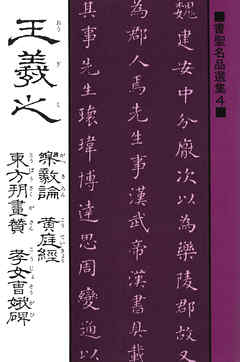 ■書聖名品選集4■
魏建安中分厭次以為樂陵郡故又
為郡人焉先生事漢武帝漢書具載
其事先生瓌瑋博達思周變通以
王羲之
おうぎし
樂毅論 黄庭經
がっきろん こうていきょう
東方朔畫贊 孝女曹娥碑
とうほうさくがさん こうじょそうがひ